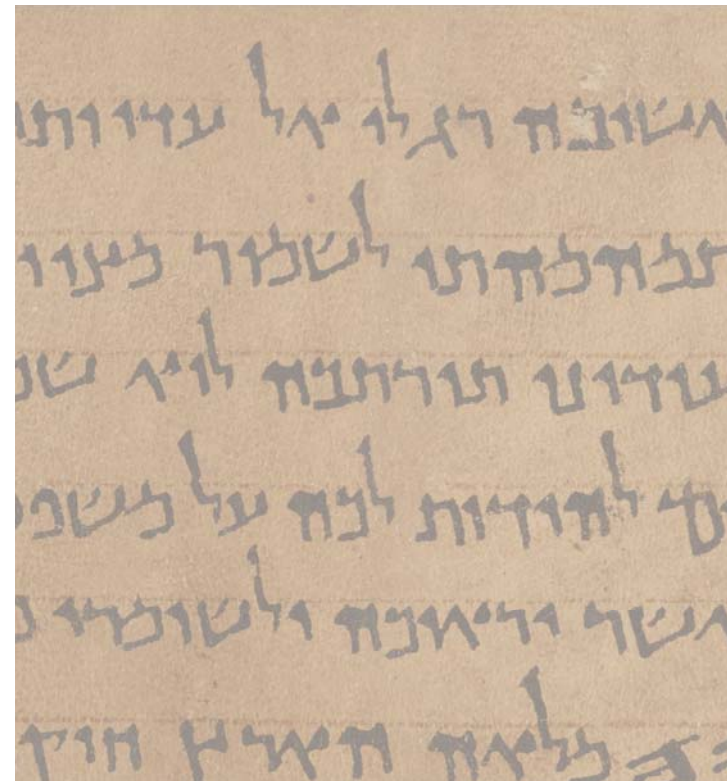 אשובה רגלי אל עדוותי
תמהמהתי לשמור מצוו
עודוני תורתכה לוא שכ
ום להודות לכה על משפט
אשר יראוכה ולשומרי
מלאה הארץ חוקי